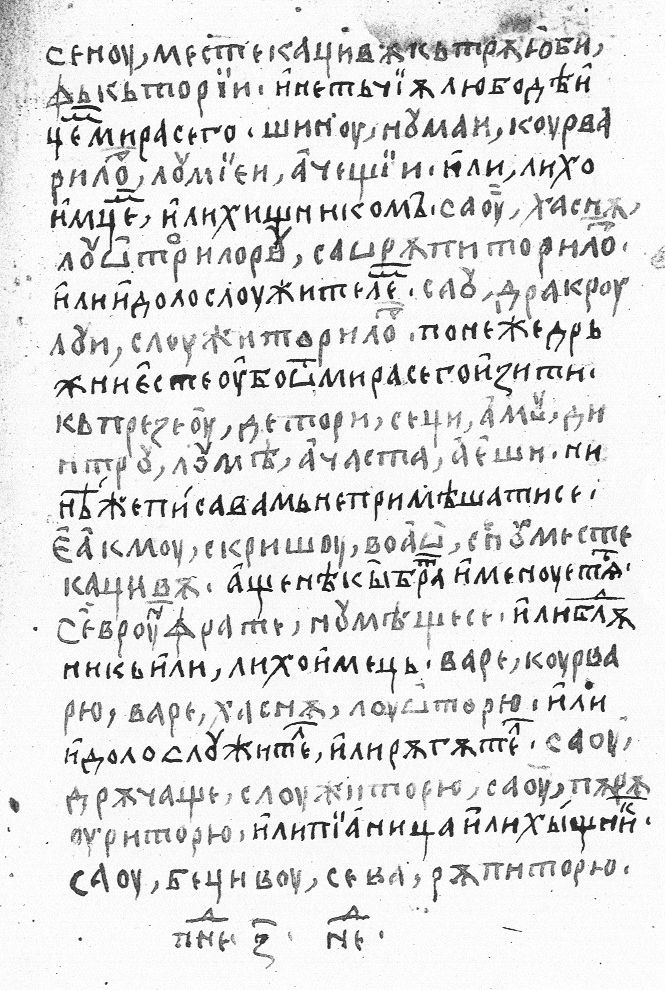 сеноу, местекацивѫкьтрѫюби,
фькьторїи · й нетьчїѫ любодѣй
цемⷨ мирасего · шиноу, нꙋмаи, коурва
рилѡⷬ, лꙋмїеи, а҆чещїи · и҆ли, лихо
и҆мцеⷨ, и҆лихищникомъ · саоу҆, хасиѫ,
лꙋѡ҆трилорꙋ, сашрѫпиторилѡⷬ ·
и҆ли и҆долослоужителеⷨ · саꙋ, дракоу
лꙋи, слоужиторилѡⷬ · понежедрь
жниѐстеоу҆боѿмирасегои҆зити ·
къпрезеоу҆, детори, сеци, а҆мꙋ, ди
нтрꙋ, лꙋмѣ, а҆часта, а҆е҆ши · ни
нѣ́жепи́савамьнепримѣшатисе ·
е҆а҆кмоу, скришоу, воа҆ѡ҆, сн҆ꙋместе
кацивѫ · а҆щенѣкы҆бра҆тⷮ и҆меноуетсѫ ·
се҆вроуⷩ҇ фрате, нꙋмѣщесе · и҆либлѫⷣ
никьи҆ли, лихои҆мець · варе, коурва
рю, варе, хасиѫ, лоуѡ҆торю · и҆ли
и҆долослꙋжите҆ⷧ, и҆лирѫгѫте҆ⷧ · саоу,
дрѫчаще, слоужиторю, саоу҆, пѫрѫ
оуриторю, и҆липїа́ницаи҆лихы́щни҆ⷦ ·
саоу, бецивоу, сева, рѫпиторю ·
пнеⷣ · з҃ · неⷣ ·